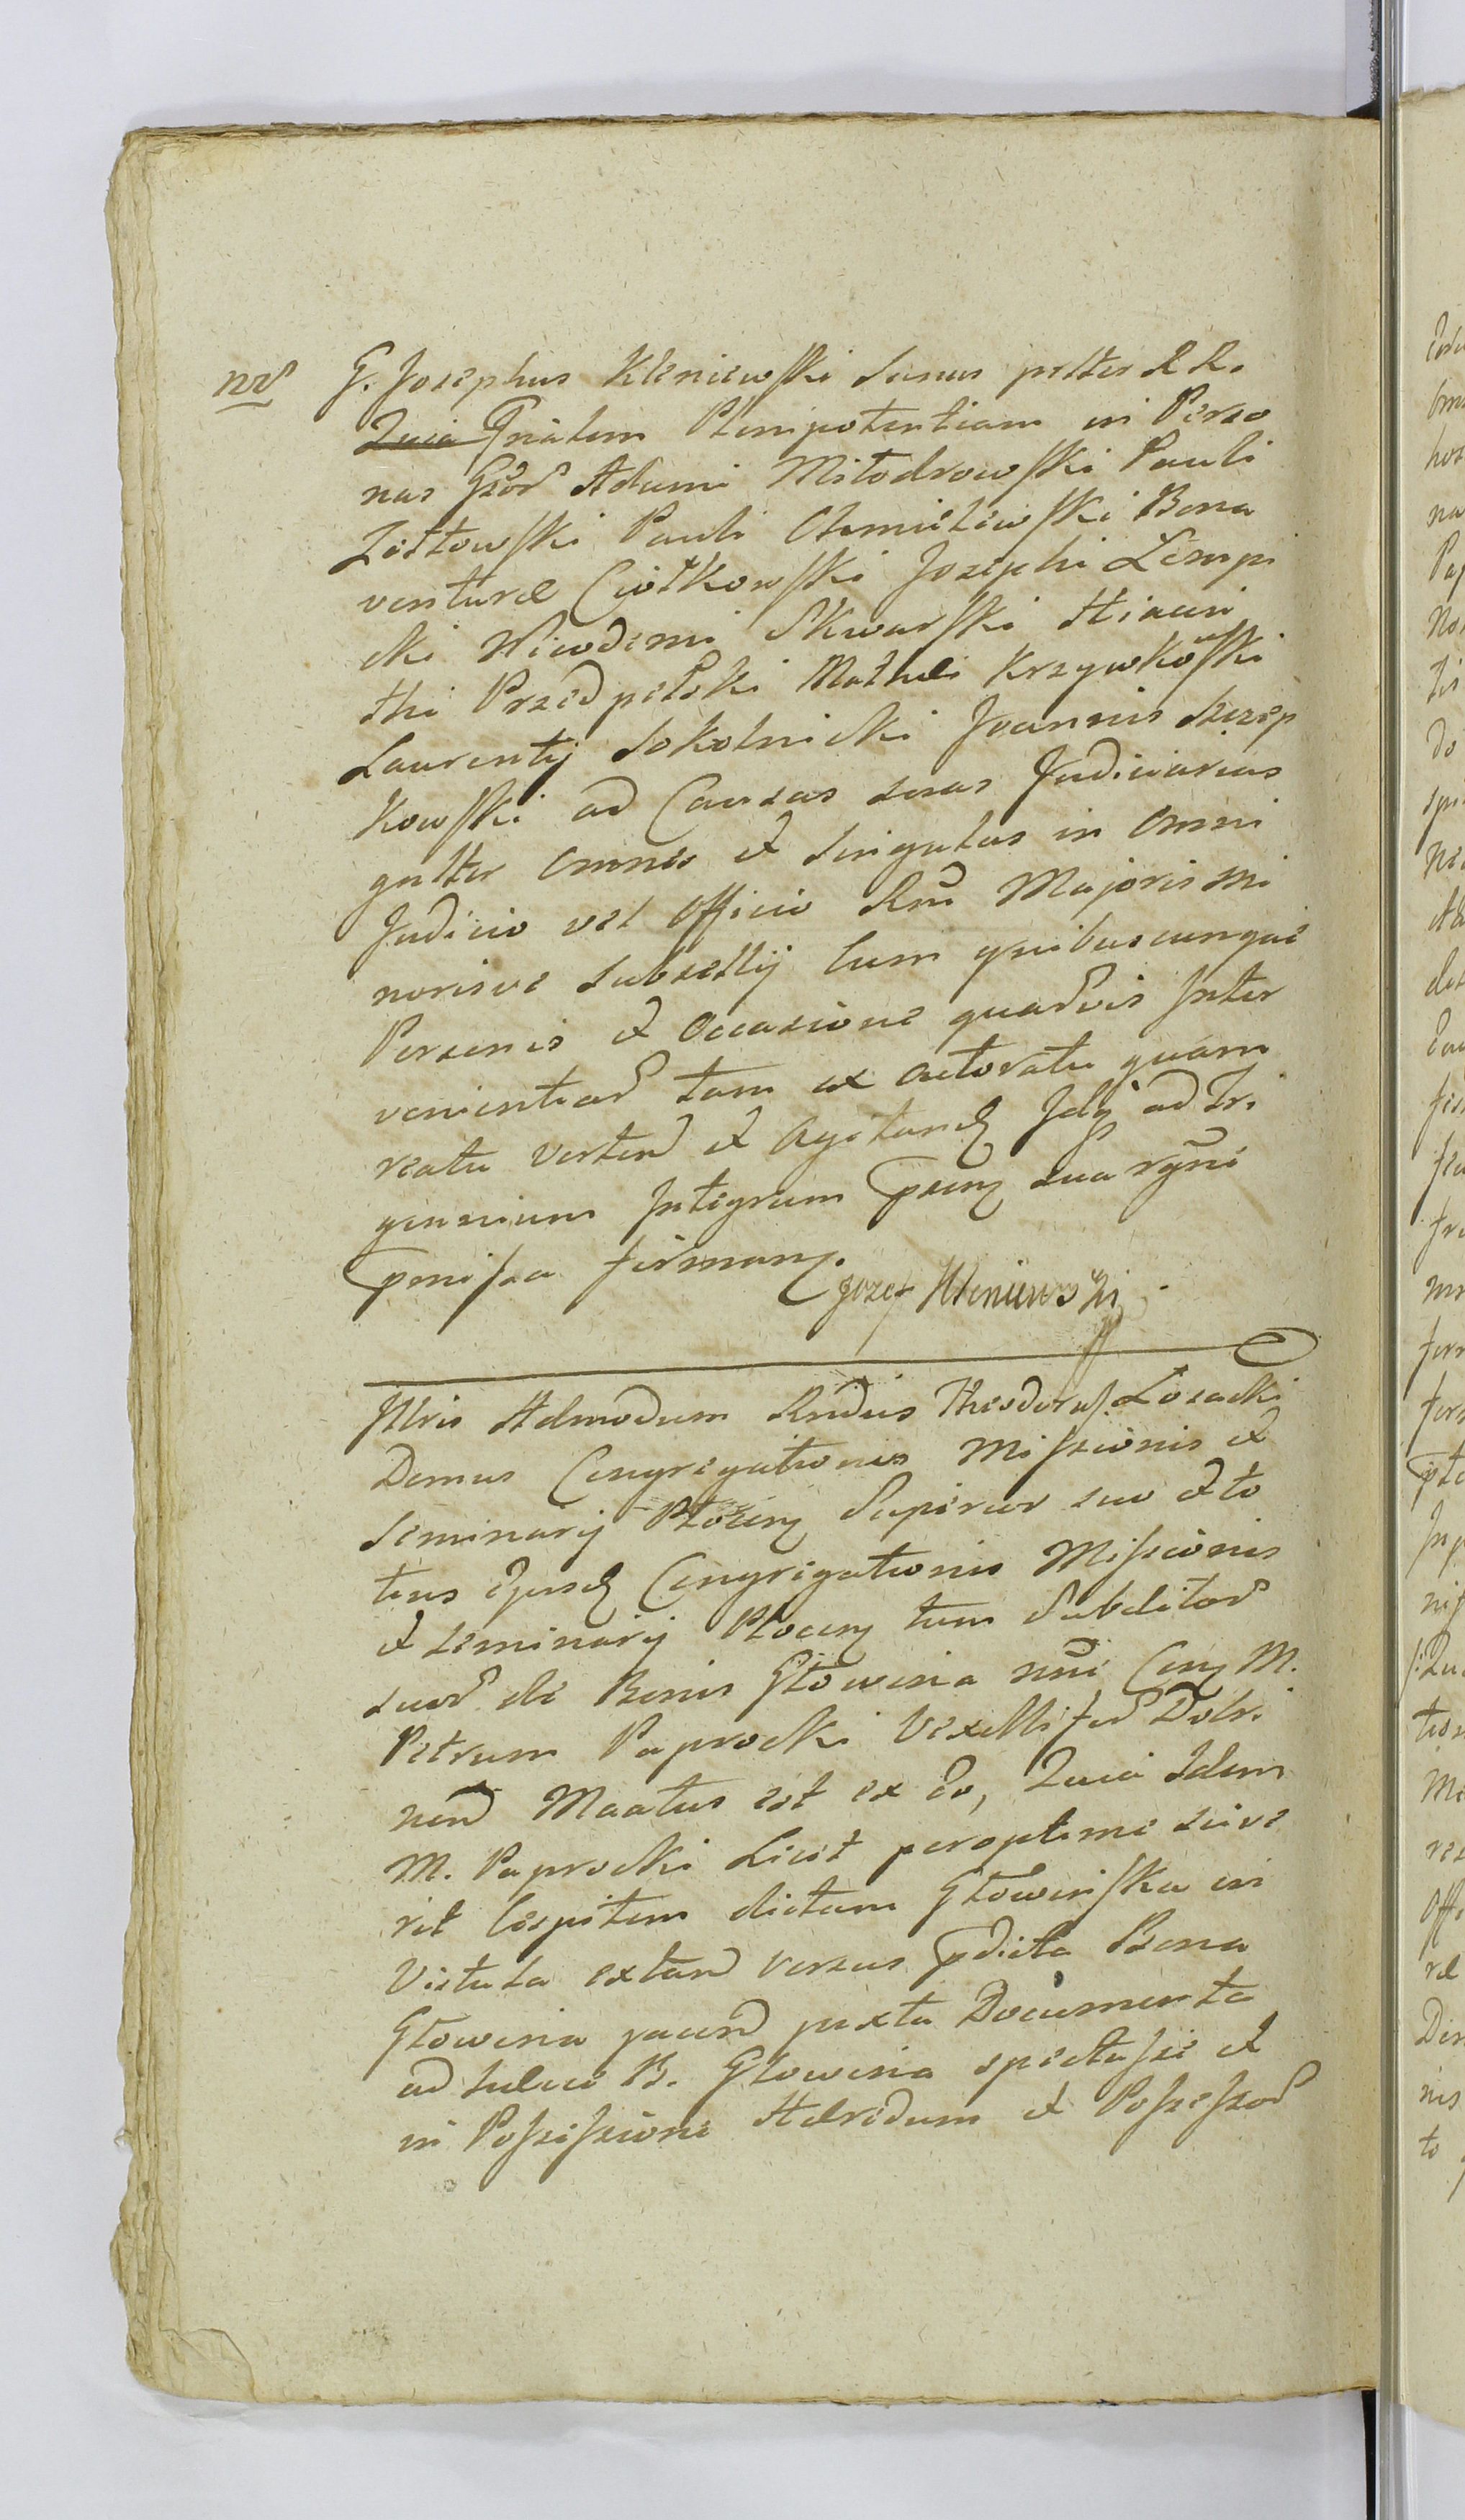 nrs
G. Josephus Kleniewski Sanus prltter R R.
Quia Gnalem Plenipotentiam in Perso
nas Gsor Adami Miłodrowski Pauli
Zołtowski Pauli Chmielewski Bona
venturæ Ciołkowski Josephi Lempi
cki Nicodemi Skwarski Hiacin
thi Przedpełski Mathæi Krzywkoski
Laurentij Sokolnicki Joannis Szczep
kowski ad Causas suas Judiciarias
gnltter omnes et singulas in omni
Judicio vel Officio Rni Majoris Mi
norisve Subsellij Cum quibuscunque
Personis et Occasione quarvis Inter
venientiar tam ex actoratu quam
reatu verten et Agitand Idq ad Tri
gennium Integrum psenq sua rgni
pmissa firmanq.
Jozef Kleniewski
Illris Admodum Rndus Theodorus Losacki
Domus Congregationis Missionis et
Seminarij Płocenq Superior suo et to
tius Ejusd Congregationis Missionis
et Seminarij Płocenq tum Subditor
suor de Bonis Głowina nni Conq M.
Petrum Paprocki Vexillifer Dobri
nen Maatus est ex Eo, Quia Idem
M. Paprocki Licet peroptime scive
rit Cespitem dictam Głowinska in
Vistula extan versus pdicta Bona
Głowina jacen juxta Documenta
ad eadem B. Głowina spectasse et
in Possessione Adredum et Possessor